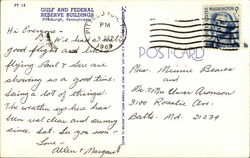 PT 14
GULF AND FEDERAL
RESERVE BUILDINGS
Pittsburgh, Pennsylvania
Hi Everyone -
We had a
good flight and like
flying Paul & Sue are
showing us a good time
seeing a lot of things.
The weather up here has
been real clear and sunny
since Sat. See you soon -
Love -
Allen & Margaret
PM
1969
WASHINGTON
POST CARD
Mrs. Minnie Beares
and
Mr & Mrs Elmer Aronson
3100 Rosalie Ave.
Balto. Md. 21234